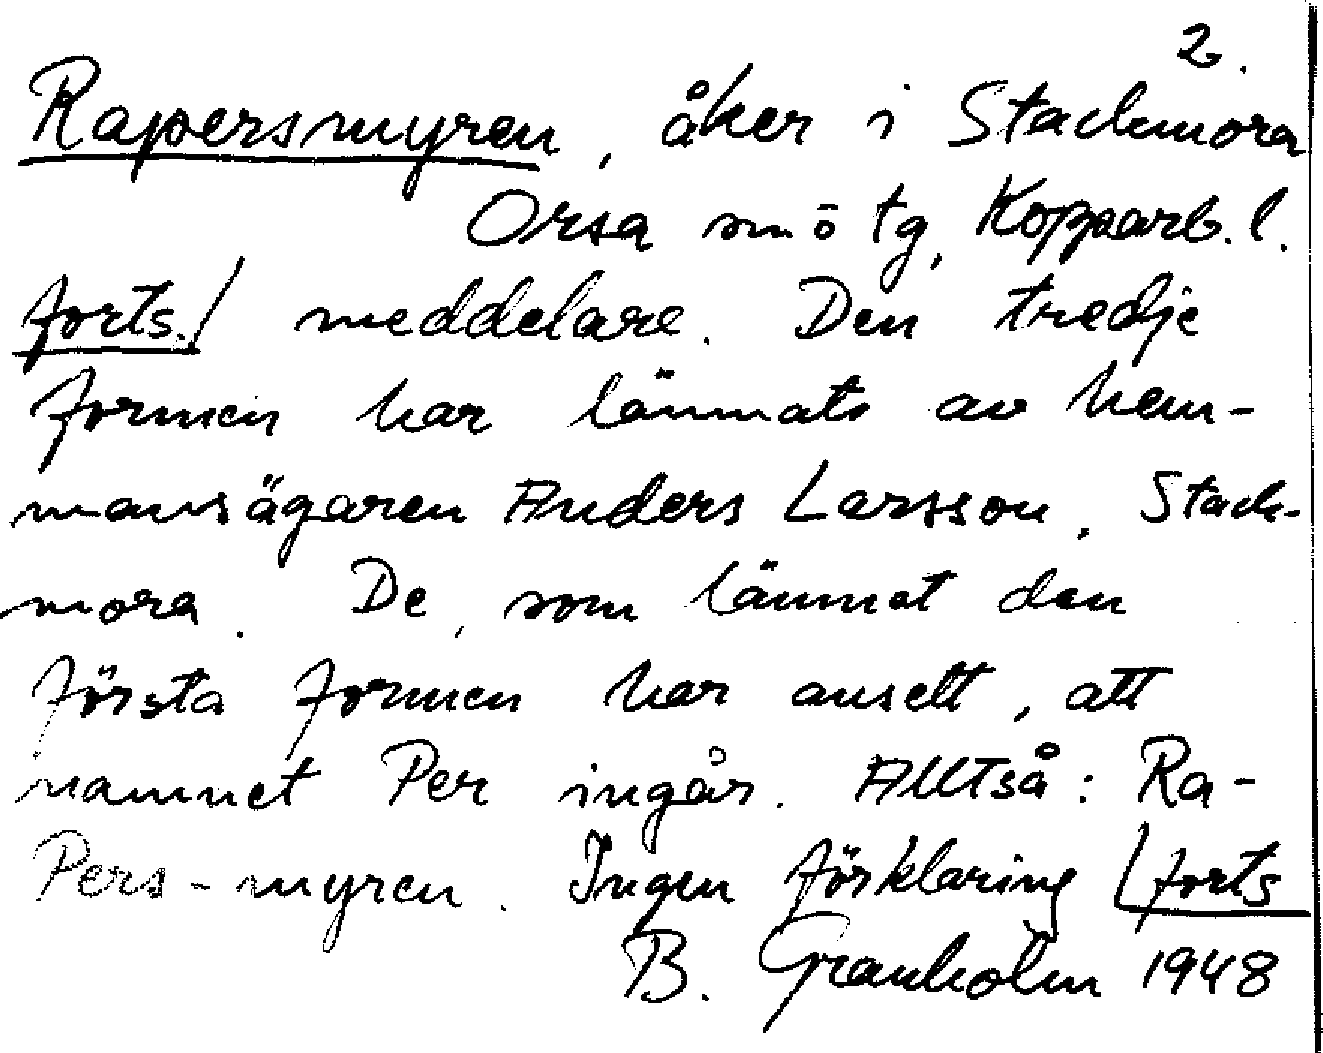 2.
Rapersmyren, åker i Stackmora
Orsa sn ö tg, Kopparb. l.
forts./ meddelare. Den tredje
formen har lämnats av hem-
mansägaren Anders Larsson, Stack-
mora. De, som lämnat den
första formen har ansett, att
namnet Per ingår. Alltså: Ra-
Pers-myren. Ingen förklaring /forts
B. Granholm 1948